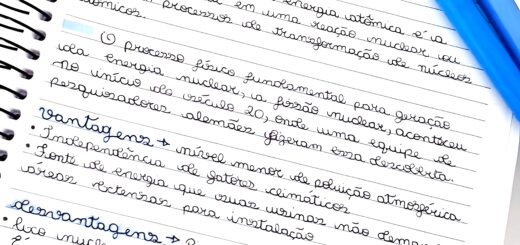 energia atômica é a
em uma reação nuclear ou
processos de transformação de núcleos
atômicos.
O processo físico fundamental para geração
da energia nuclear, a fissão nuclear, aconteceu
no início do século 20, onde uma equipe de
pesquisadores alemães fizeram essa descoberta.
Vantagens → nível menor de poluição atmosférica.
• Independência de fatores climáticos
• Fonte de energia que suas usinas não
áreas extensas para instalação
desvantagens →
• lixo